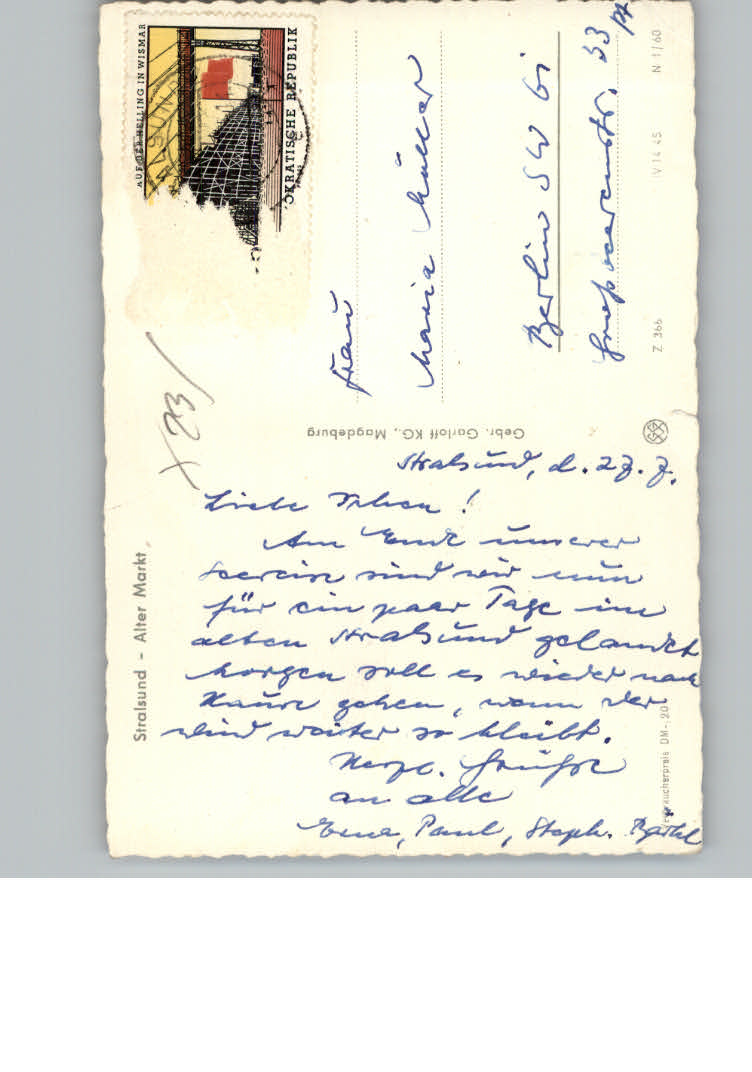 AUF DER HELLING IN WISMAR
OKRATISCHE REPUBLIK
Frau
Maria Müller
Berlin SW 61
Großbeerenstr. 33 pt
N 1/60
IV 14 45
Z 366
x 23/
Gebr. Garloff KG., Magdeburg
Stralsund - Alter Markt
Verbraucherpreis DM -,20
Stralsund, d. 27. 7.
Liebe
Am Ende unserer
Seereise sind wir nun
für ein paar Tage im
alten Stralsund gelandet
Morgen soll es wieder nach
Hause gehen, wenn der
Wind weiter so bleibt.
Herzl. Grüße
an alle
Paul, Steph.